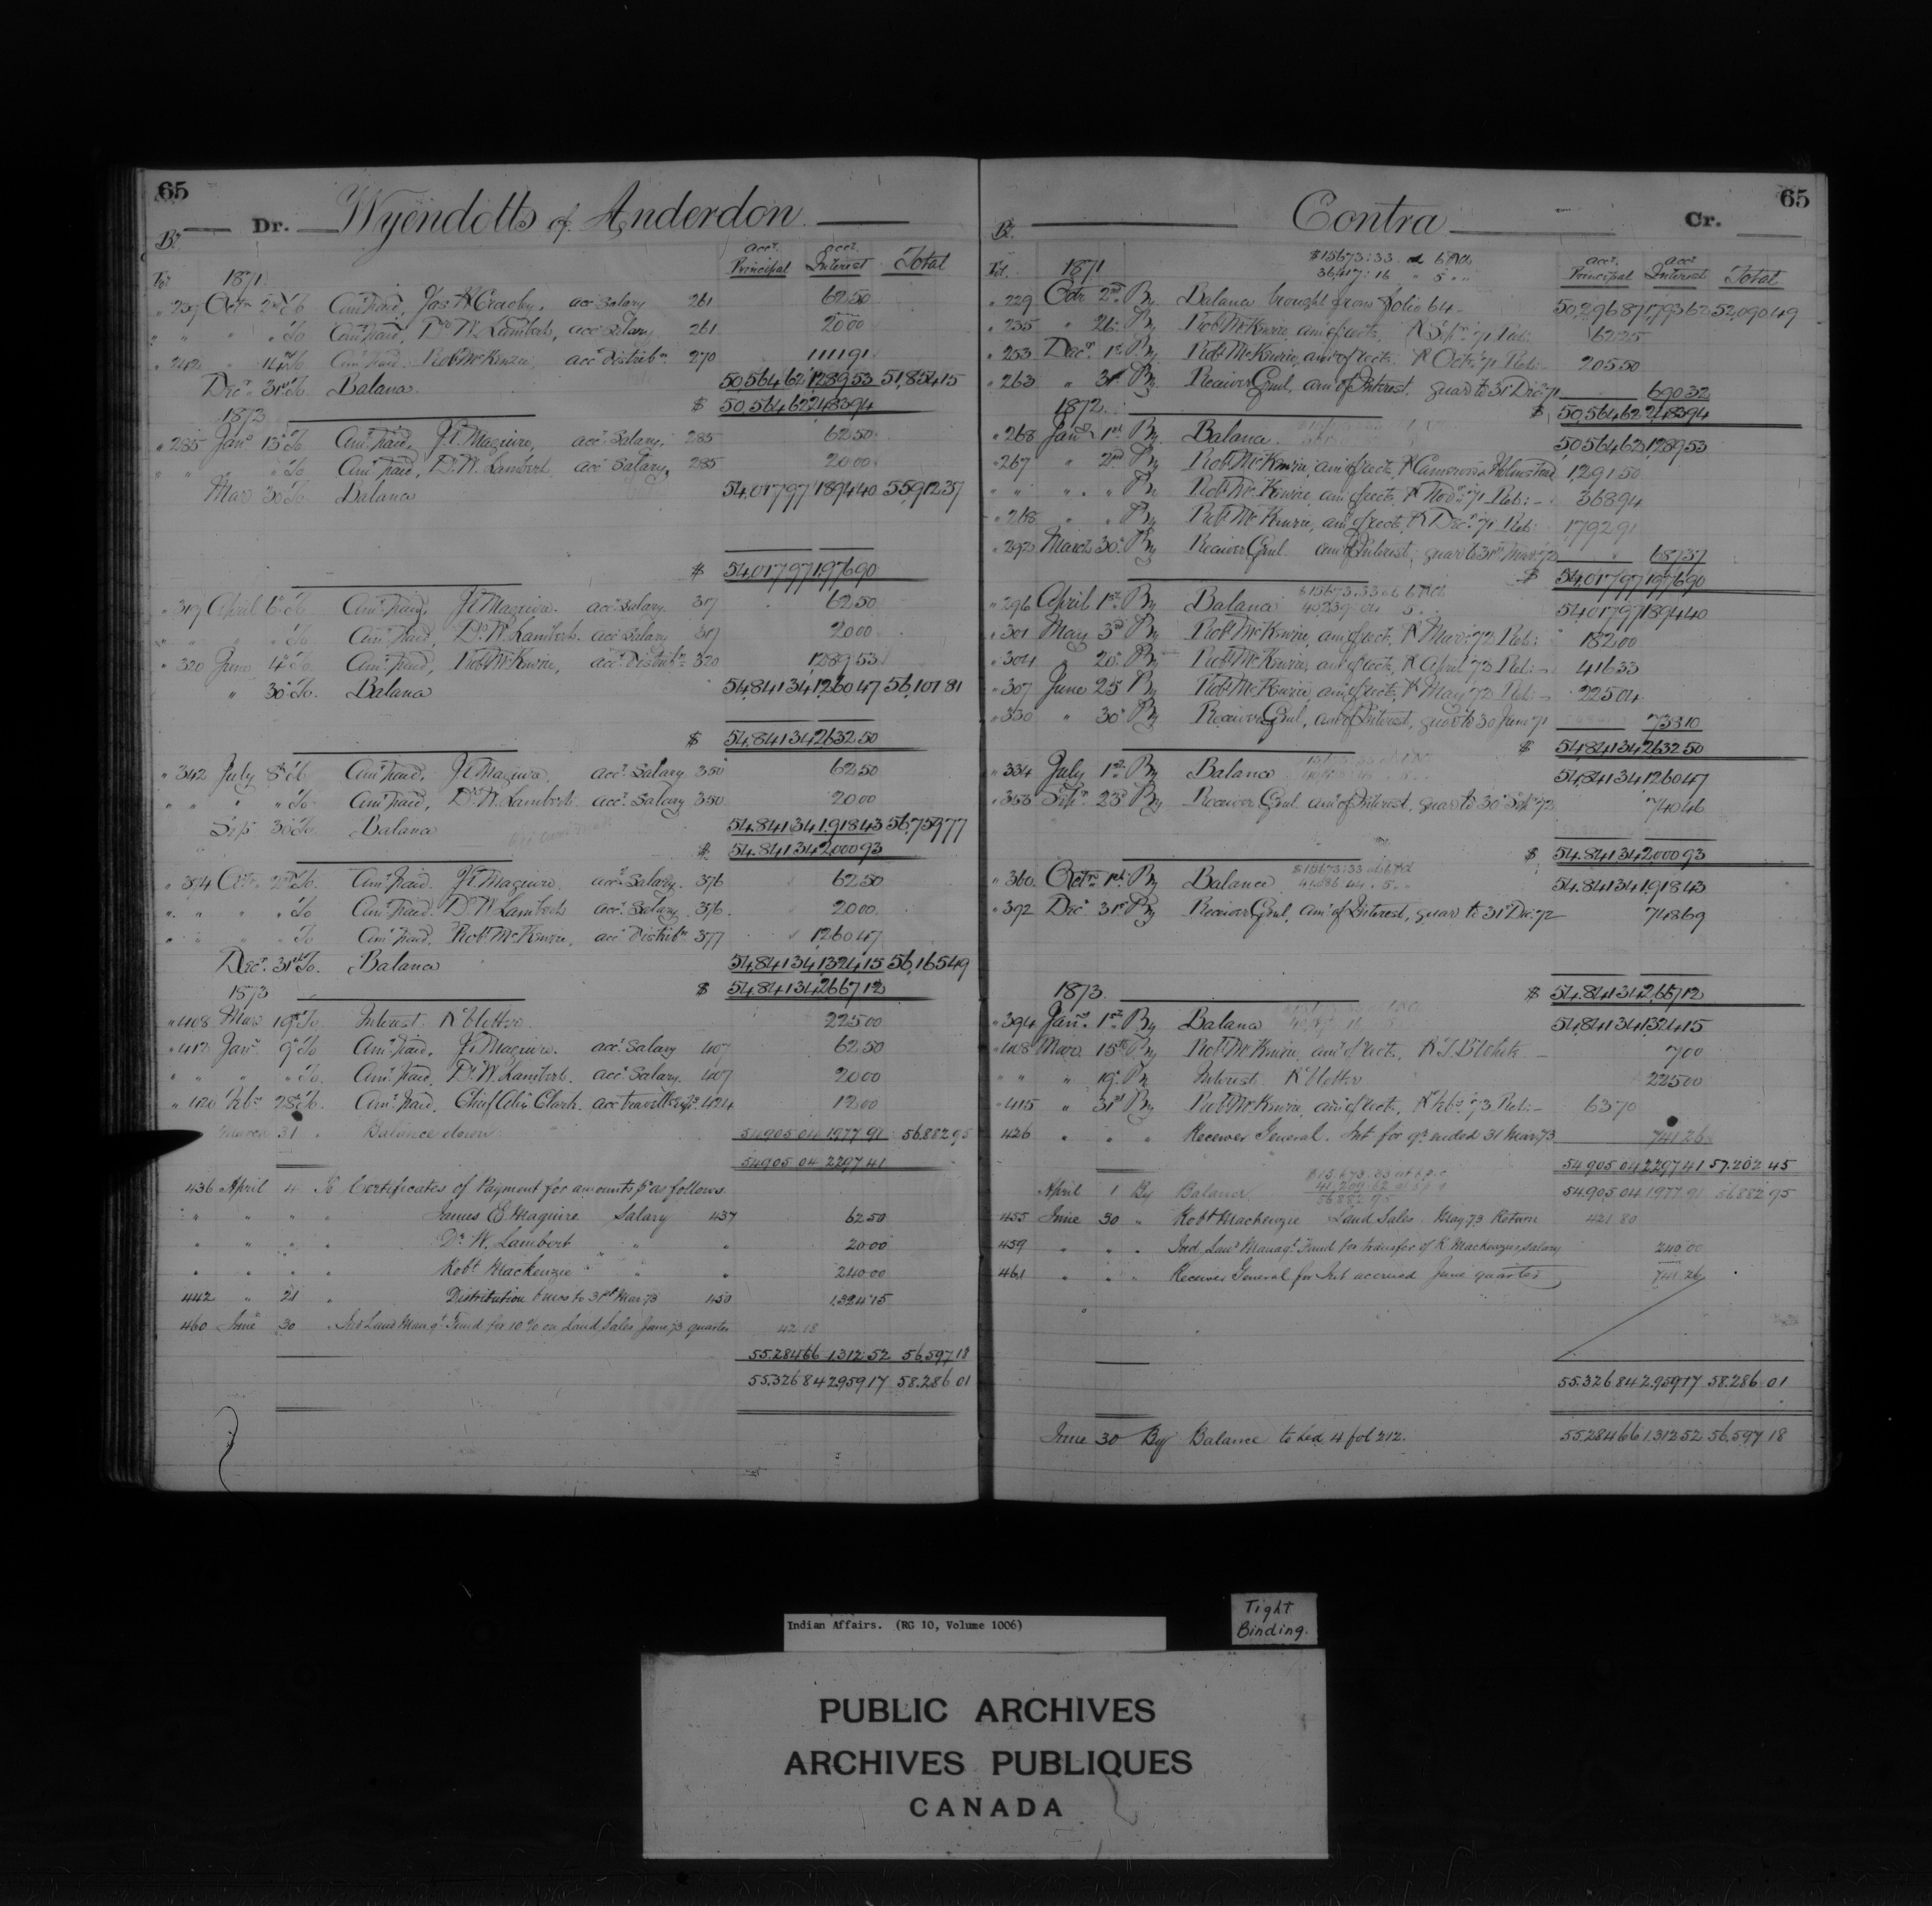 65
Dr. Wyendotts of Anderdon
acct. Principal acct. Interest Total
1871
" 239 Octr 2nd To Amt paid, acct Salary 261 62.50
" " " " To Amt paid, Dr W. Lambert, acct Salary 261 20.00
" 242 " 14 To Amt Paid Robt McKenzie, acct Distribn 270 1,111.91
Decr 31st To Balance 50,564.62 1,289.53 51,854.15
$ 50,564.62 2,483.94
1872
" 285 Jany 13 To Amt Paid, J. E. Maguire, acct Salary, 285 62.50
" " " " To Amt Paid, Dr W. Lambert acct Salary, 285 20.00
Mar 30 To Balance 54,017.97 1,894.40 55,912.37
$ 54,017.97 1,976.90
" 317 April 6 To Amt Paid, J. E. Maguire. acct Salary 317 62.50
" " " " To Amt Paid, Dr W. Lambert. acct Salary 317 20.00
" 320 June 4 To Amt Paid, Robt McKenzie, acct Distribn 320 1,289.53
" 30 To. Balance 54,841.34 1,260.47 56,101.81
$ 54,841.34 2,632.50
" 342 July 8 To Amt Paid, J. E. Maguire acct Salary 350 62.50
" " " " To Amt Paid, Dr W. Lambert acct Salary 350 20.00
Sept 30 To Balance 54,841.34 1,918.43 56,759.77
$ 54,841.34 2,000.93
" 374 Octr 2nd To. Amt Paid. J. E. Maguire acct Salary. 376 62.50
" " " " To Amt Paid. Dr W. Lambert acct Salary. 376 20.00
" " " " To Amt Paid. Robt McKenzie, acct Distribn 377 1,260.47
Decr 31st To. Balance 54,841.34 1,324.15 56,165.49
1873 $ 54,841.34 2,667.12
" 408 Mar 19 To Interest 225.00
" 412 Jany 9 To Amt Paid, J. E. Maguire. acct Salary 407 62.50
" " " " To. Amt Paid Dr W. Lambert. acct Salary. 407 20.00
" 420 Feby 28 To. Amt Paid. Chief Alexr Clark. acct travellg exps. 424 12.00
March 31 " Balance down 54,905.04 1,977.91 56,882.95
54,905.04 2,297.41
436 April 4 To Certificates of Payment for amounts pd as follows
" " " " James E Maguire Salary 437 62.50
" " " " Dr W. Lambert " " 20.00
" " " " Robt Mackenzie " " 240.00
442 " 21 " Distribution to 31st Mar 73 450 1,324.15
460 June 30 " Ind Land Mangt Fund for 10% on Land Sales June 73 quarter 42.18
55,284.66 1,312.52 56,597.18
55,326.84 2,959.17 58,286.01
65
Contra Cr.
$15673:33 at 6 P Ct
36,417:16 " 5 " "
acct. Principal acct Interest Total
1871
" 229 Octr 2nd By Balance brought from folio 64 50,296.87 1,793.62 52,090.49
" 235 " 26 By Robt McKenzie, amt of rects, P Sepr '71 Ret: 62.25
" 253 Decr 1st By Robt McKenzie, amt of rects. P Octr '71 Ret: 205.50
" 263 " 31st By Receiver Genl, amt of Interest, quar to 31 Dec '71 690.32
1872. $ 50,564.62 2,483.94
" 268 Jany 1st By Balance 50,564.62 1,289.53
" 267 " 2nd By Robt McKenzie, amt of rect, P 1,291.50
" " " " By Robt McKenzie amt of rect P Novr '71 Ret: 368.94
" 268 " " By Robt McKenzie, amt of rect, P Decr '71 Ret: 1,792.91
" 292 March 30 By Receiver Genl amt of Interest, quar to 31st Mar '72 687.37
$ 54,017.97 1,976.90
" 296 April 1st By Balance $15673.33 at 6 P Ct 54,017.97 1,894.40
40,239:04 5 "
" 301 May 3rd By Robt McKenzie, amt of rect, P Mar '72 Ret: 182.00
" 304 " 20 By Robt McKenzie, amt of rect, P April '72 Ret: 416.33
" 307 June 25 By Robt McKenzie, amt of rect, P May '72 Ret: 225.04
" 330 " 30 By Receiver Genl, amt of Interest, quar to 30 June '71 738.10
$ 54,841.34 2,632.50
" 334 July 1st By Balance 54,841.34 1,260.47
" 353 Sepr 23rd By Receiver Genl amt of Interest, quar to 30 Sepr '72 740.46
$ 54,841.34 2,000.93
" 360 Octr 1st By Balance $15673:33 at 6 P Ct 54,841.34 1,918.43
41,086.44 " 5 "
" 392 Decr 31st By Receiver Genl, amt of Interest, quar to 31st Dec '72 748.69
1873. $ 54,841.34 2,667.12
" 394 Jany 1st By Balance 54,841.34 1,324.15
" 408 Mar 15th By Robt McKenzie, amt of rects, P T. B. White 7.00
" " " 19 By Interest 225.00
" 415 " 31st By Robt McKenzie, amt of rects, P Feby '73 Ret: 63.70
426 " " " Receiver General. Int for qr ended 31 Mar 73 741.26
54,905.04 2,297.41 57,202.45
$15,673.33 at 6 p.c
April 1 By Balance 41,209.62 at 5 p.c 54,905.04 1,977.91 56,882.95
56882.95
455 June 30 " Robt Mackenzie Land Sales May 73 Return 421.80
459 " " " Ind Land Managt Fund for transfer of R Mackenzie's salary 240.00
461 " " " Receiver General for Int accrued June quarter 741.26
55,326.84 2,959.17 58,286.01
June 30 By Balance to Led 4 fol 212. 55,284.66 1,312.52 56,597.18
Indian Affairs. (RG 10, Volume 1006)
Tight
Binding.
PUBLIC ARCHIVES
ARCHIVES PUBLIQUES
CANADA